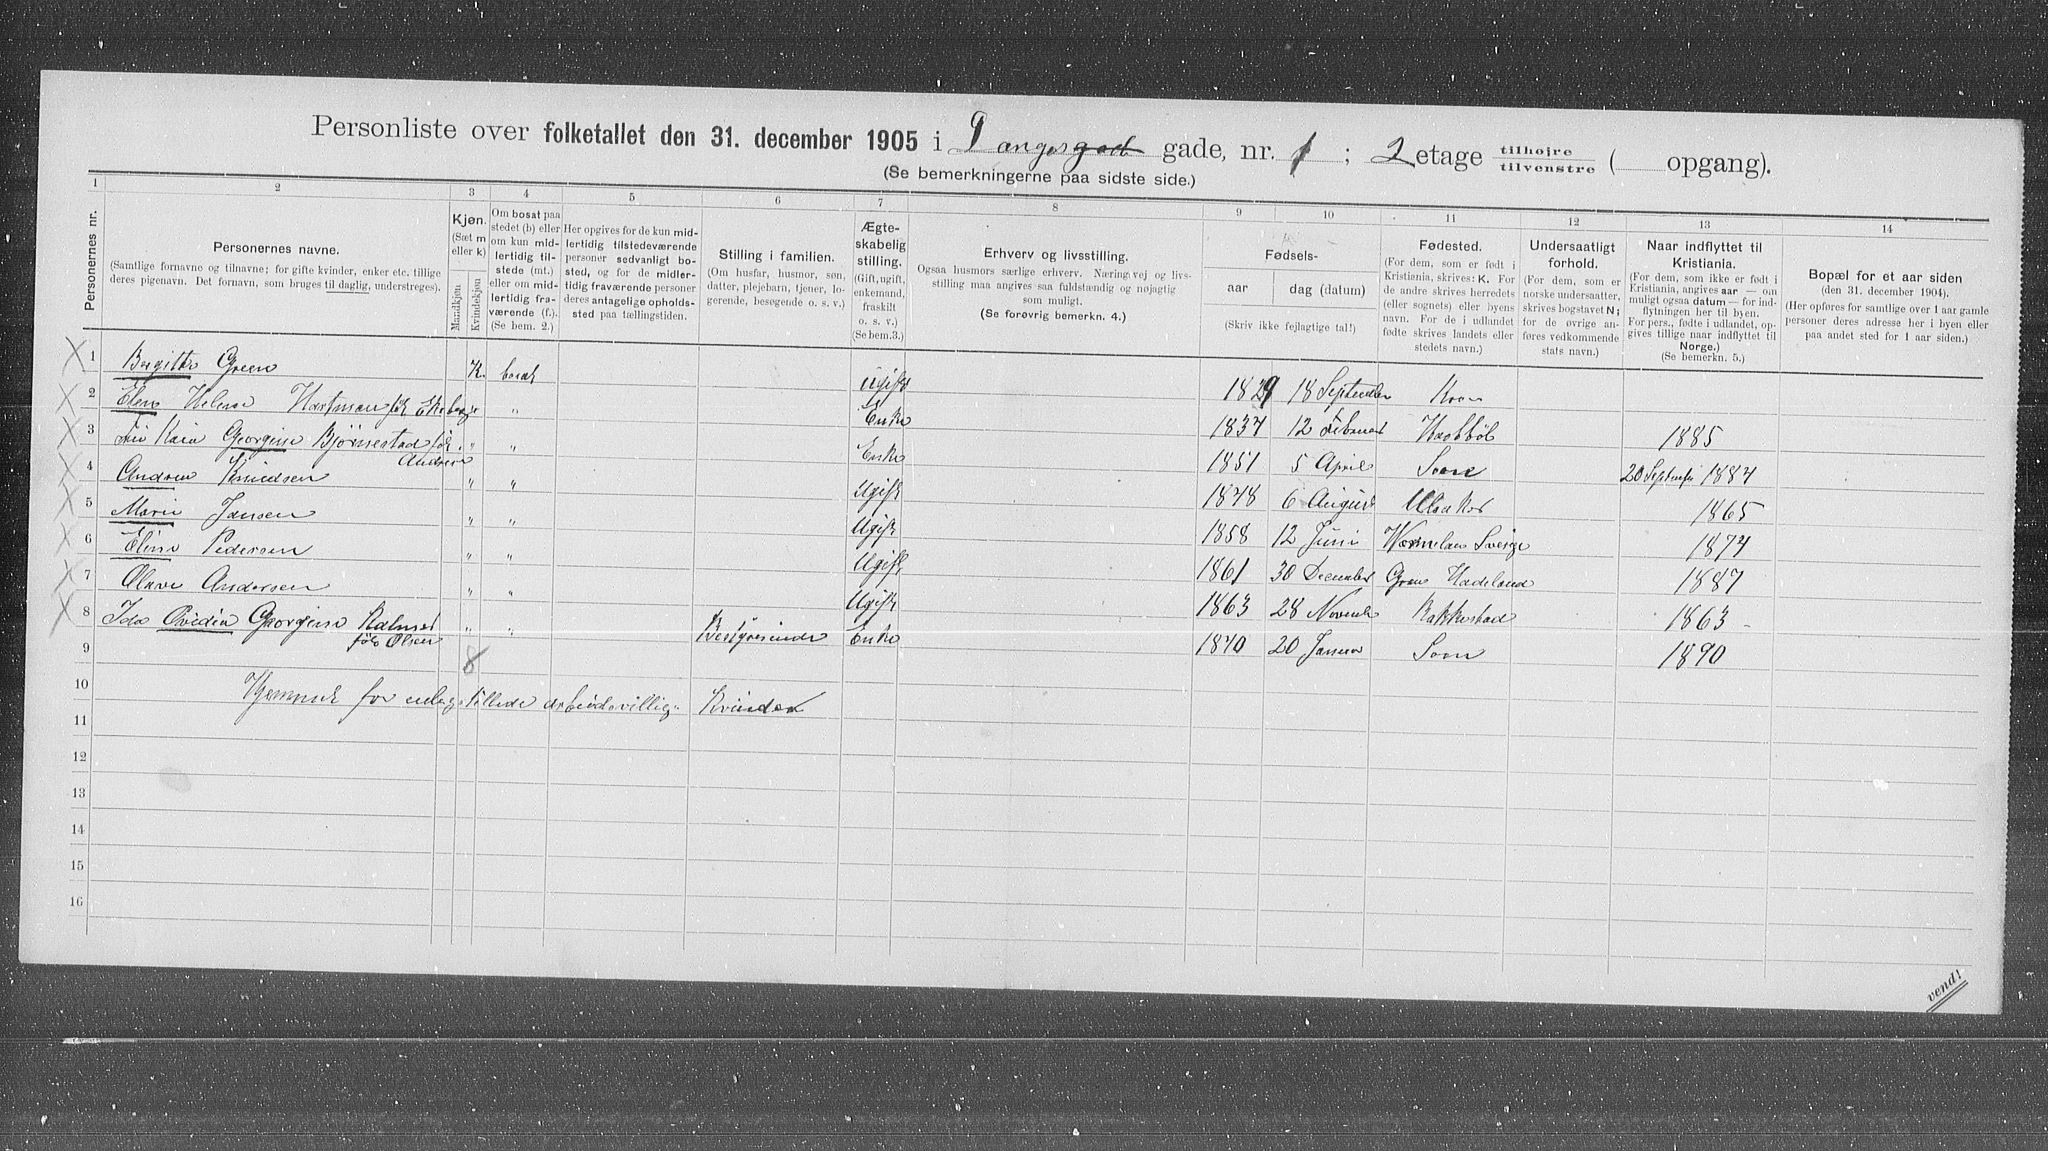 Personliste over folketallet den 31. december 1905 i Langesgade gade, nr. 1; 2 etage tilhøjre / tilvenstre ( opgang).
(Se bemerkningerne paa sidste side.)
1 2 3 4 5 6 7 8 9 10 11 12 13 14
Personernes nr.
Personernes navne.
(Samtlige fornavne og tilnavne; for gifte kvinder, enker etc. tillige deres pigenavn. Det fornavn, som bruges til daglig, understreges).
Kjøn.
(Sæt m eller k)
Mandkjøn
Kvindekjøn
Om bosat paa stedet (b) eller om kun midlertidig tilstede (mt.) eller om midlertidig fraværende (f.). (Se bem. 2.)
Her opgives for de kun midlertidig tilstedeværende personer sedvanligt bosted, og for de midlertidig fraværende personer deres antagelige opholdssted paa tællingstiden.
Stilling i familien.
(Om husfar, husmor, søn, datter, plejebarn, tjener, logerende, besøgende o. s. v.)
Ægteskabelig stilling.
(Gift, ugift, enkemand, fraskilt o. s. v.) (Se bem. 3.)
Erhverv og livsstilling.
Ogsaa husmors særlige erhverv. Næringsvej og livsstilling maa angives saa fuldstændig og nøjagtig som muligt.
(Se forøvrig bemerkn. 4.)
Fødsels-
aar
dag (datum)
(Skriv ikke fejlagtige tal!)
Fødested.
(For dem, som er født i Kristiania, skrives: K. For de andre skrives herredets (eller sognets) eller byens navn. For de i udlandet fødte skrives landets eller stedets navn.)
Undersaatligt forhold.
(For dem, som er norske undersaatter, skrives bogstavet N; for de øvrige anføres vedkommende stats navn.)
Naar indflyttet til Kristiania.
(For dem, som ikke er født i Kristiania, angives aar — om muligt ogsaa datum — for indflytningen her til byen. For pers., fødte i udlandet, opgives tillige naar indflyttet til Norge.)
(Se bemerkn. 5.)
Bopæl for et aar siden
(den 31. december 1904.)
(Her opføres for samtlige over 1 aar gamle personer deres adresse her i byen eller paa andet sted for 1 aar siden.)
1 Birgitte Green K. bosat Ugift 1829 18 September
2 Elen Helene Hartman Enke 1837 12 Februar 1885
3 Kaia Georgine Bjørnestad Andresen " " Enke 1851 5 April Soon 20 September 1887
4 Andrea Knudsen " " Ugift 1848 6 August 1865
5 Marie Jansen " " Ugift 1858 12 Juni Sverige 1874
6 Eline Pedersen " " Ugift 1861 30 December Gran Hadeland 1887
7 Olave Andersen " " Ugift 1863 28 Novemb Rakkestad 1863
8 Ida Ovedia Georgine fød Olsen " " Bestyrerinde Enke 1870 20 Januar Soon 1890
9 8
10 Hjemmet for arbeidsvillige Kvinder
11
12
13
14
15
16
vend!